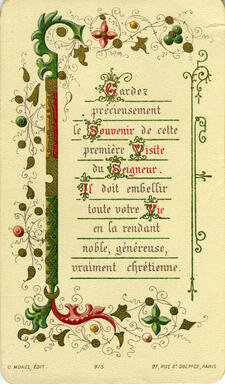 Gardez
précieusement
le Souvenir de cette
première Visite
du Seigneur.
Il doit embellir
toute votre Vie
en la rendant
noble, généreuse,
vraiment chrétienne.
C. MOREL, ÉDIT. 975 21, RUE St SULPICE, PARIS